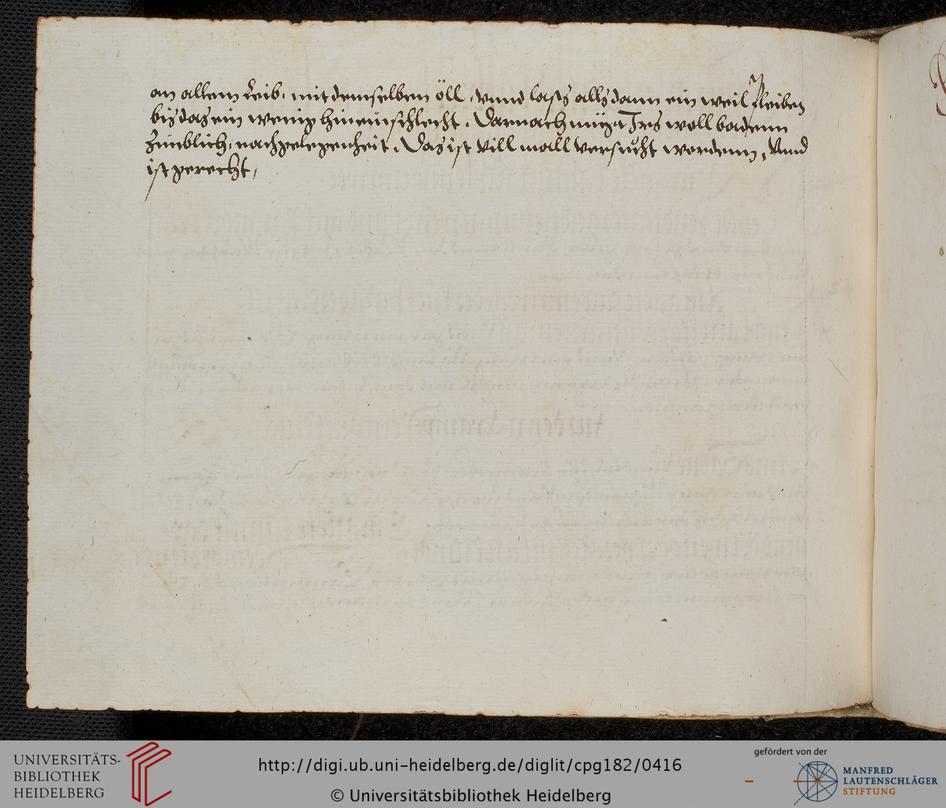 an allem Leib, mit demselben öll, vnnd lasts allsdann ein weil bleiben
bis das ein wenig hinein schlecht. Darnach müget Irs woll badenn
Zimblich, nach gelegenheit. Das ist vill mall versucht wordenn, Vnnd
ist gerecht,
UNIVERSITÄTS-
BIBLIOTHEK
HEIDELBERG
http://digi.ub.uni-heidelberg.de/diglit/cpg182/0416
© Universitätsbibliothek Heidelberg
gefördert von der
MANFRED
LAUTENSCHLÄGER
STIFTUNG